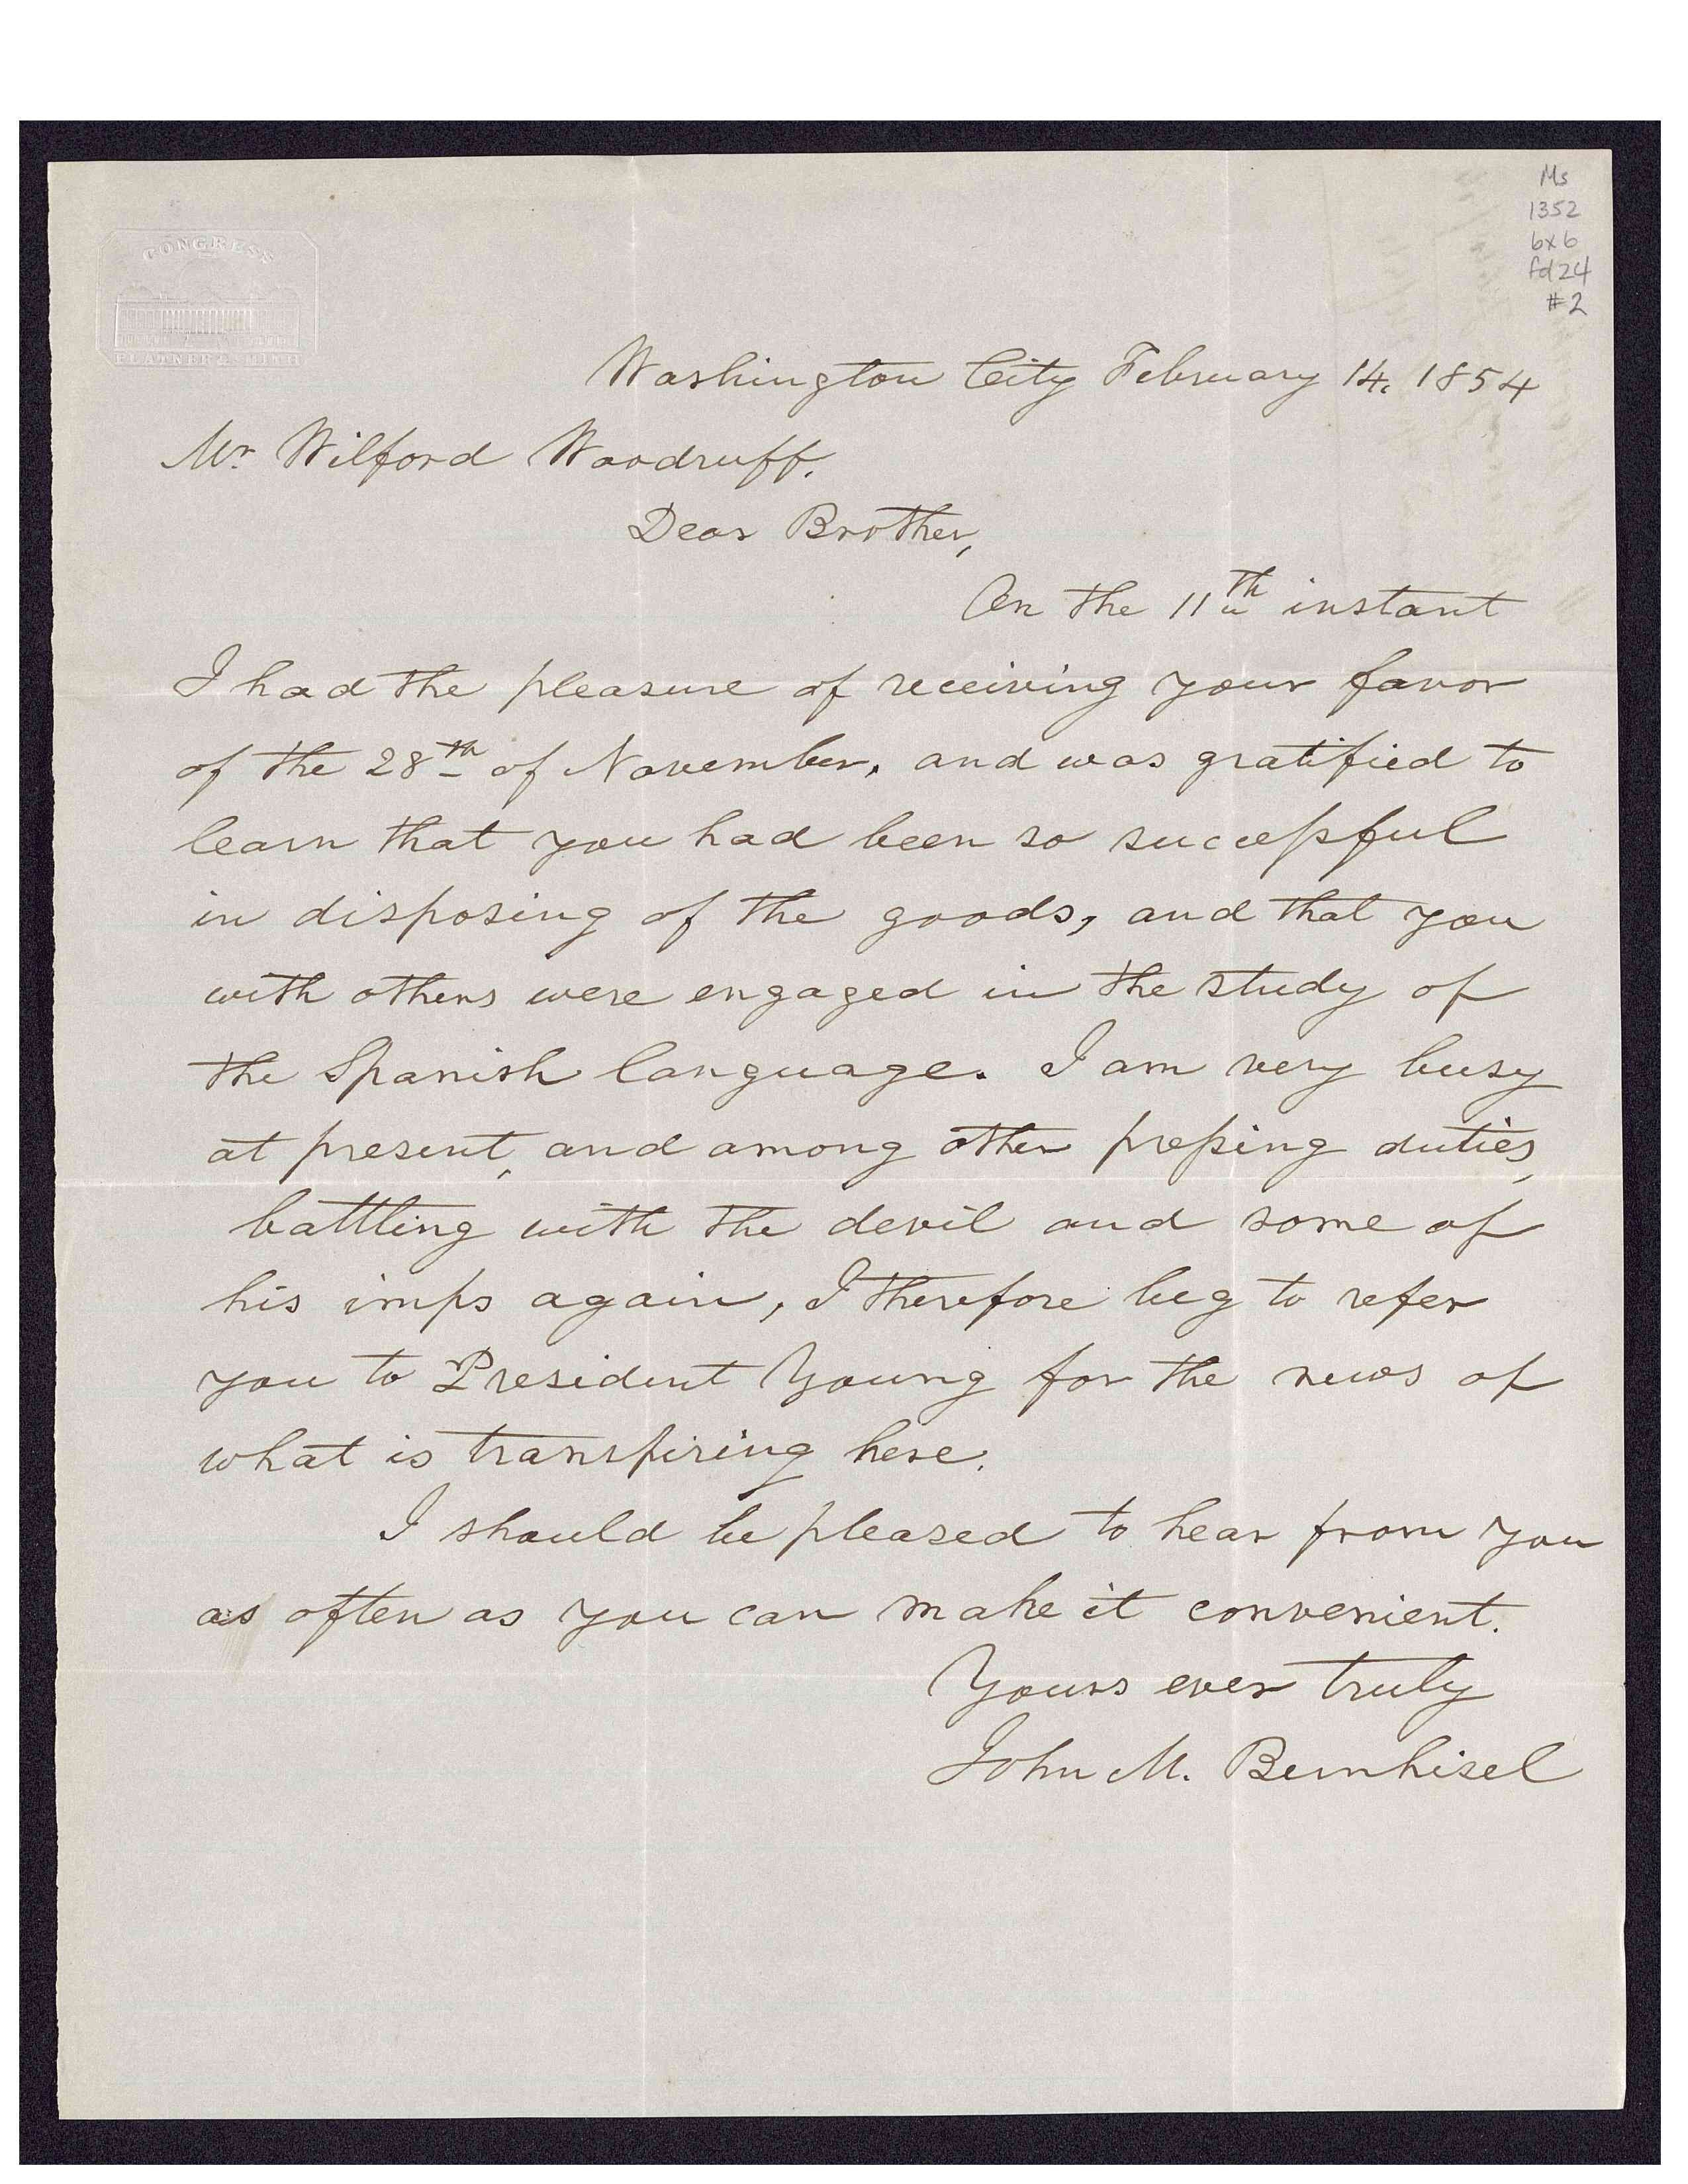 Ms
1352
bx 6
fd 24
#2
CONGRESS
PLATNER & SMITH
Washington City February 14, 1854
Mr Wilford Woodruff.
Dear Brother,
On the 11th instant
I had the pleasure of receiving your favor
of the 28th of November, and was gratified to
learn that you had been so successful
in disposing of the goods, and that you
with others were engaged in the study of
the Spanish language. I am very busy
at present, and among other pressing duties,
battling with the devil and some of
his imps again, I therefore beg to refer
you to President Young for the news of
what is transpiring here.
I should be pleased to hear from you
as often as you can make it convenient.
Yours ever truly
John M. Bernhisel